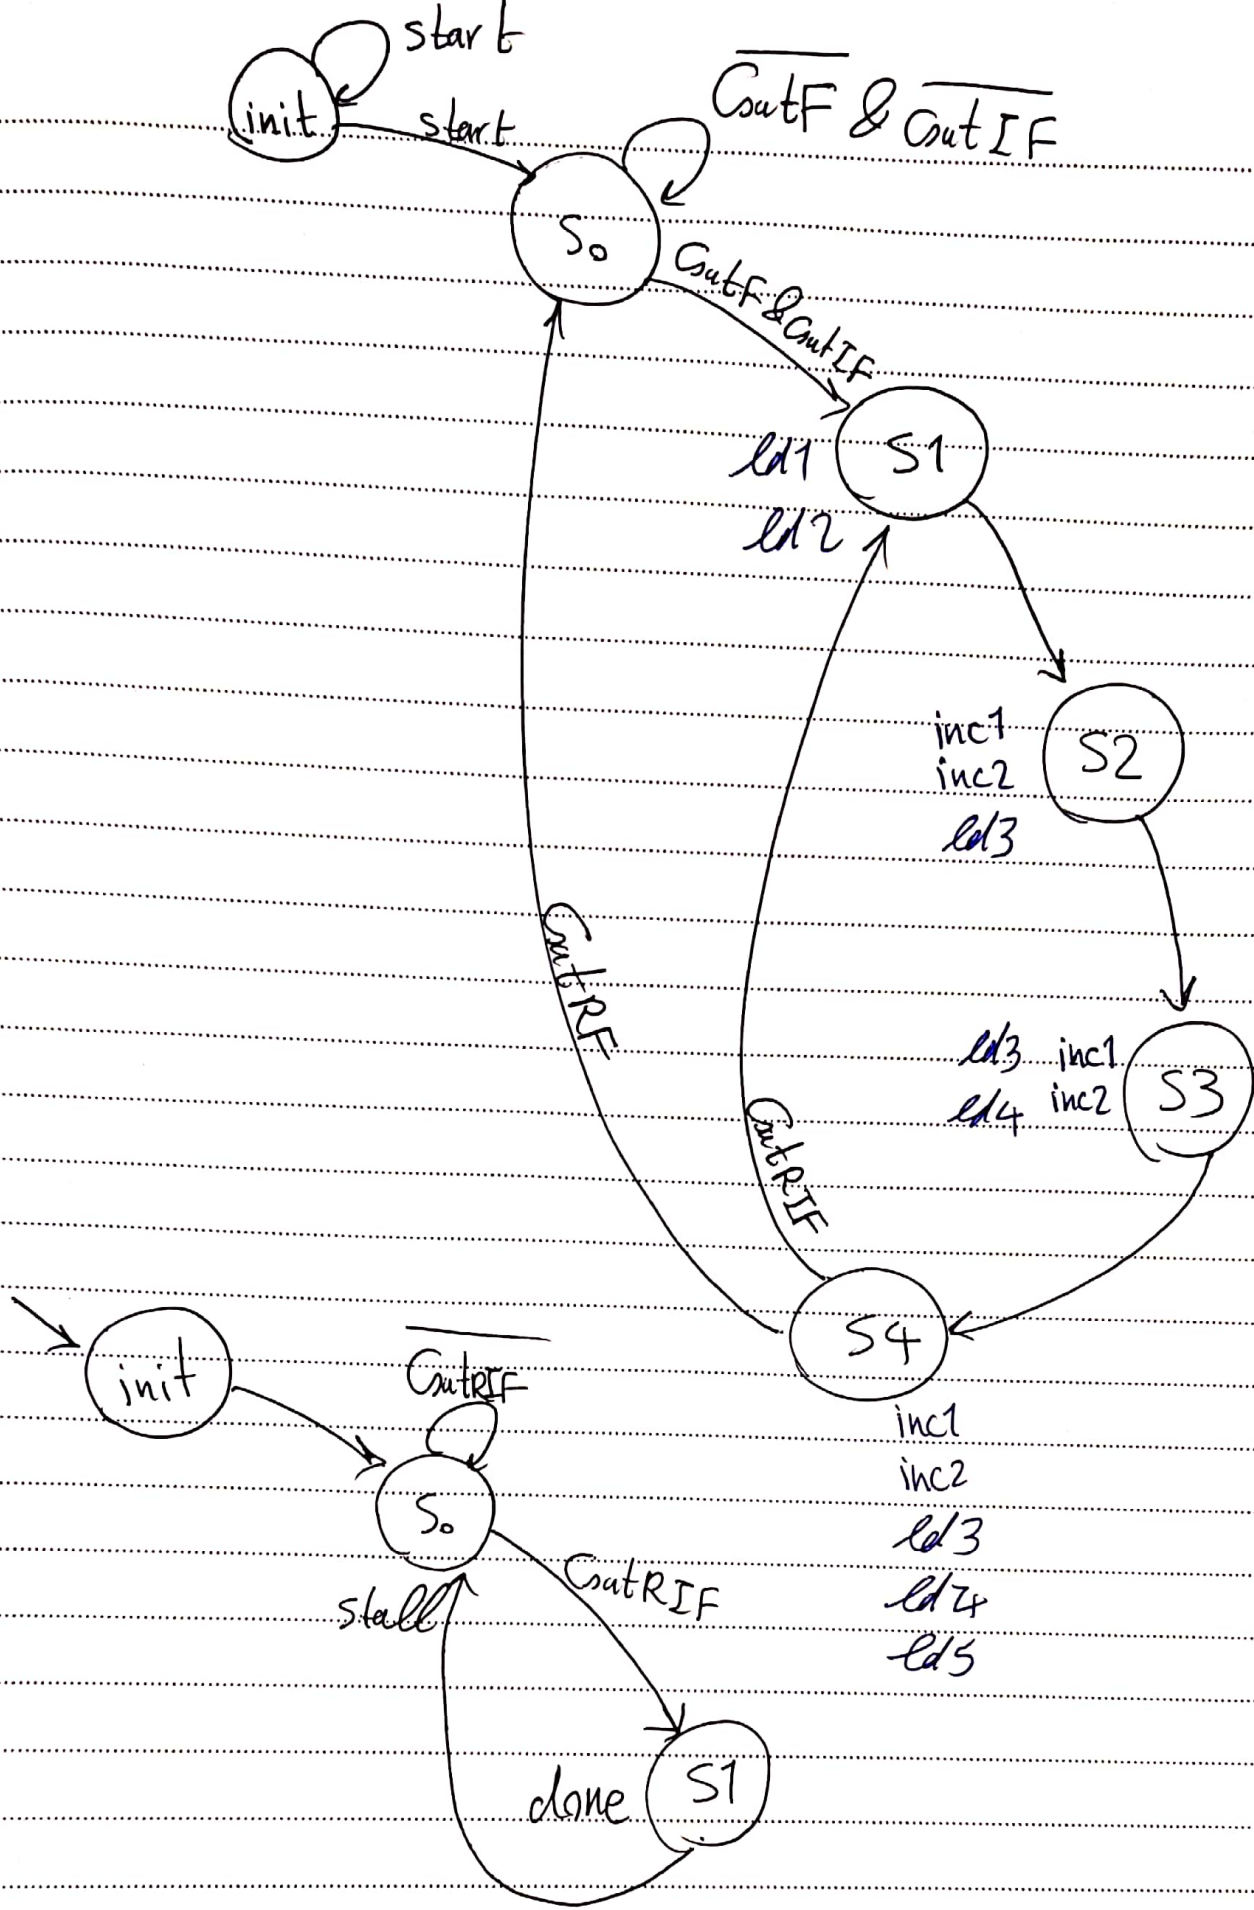 start
init
start
CoutF & CoutIF
S0
CoutF & CoutIF
S1
ld1
ld2
inc1
inc2
ld3
S2
ld3 inc1
ld4 inc2
S3
CoutRF
CoutRIF
S4
inc1
inc2
ld3
ld4
ld5
init
CoutRIF
S0
CoutRIF
stall
done
S1